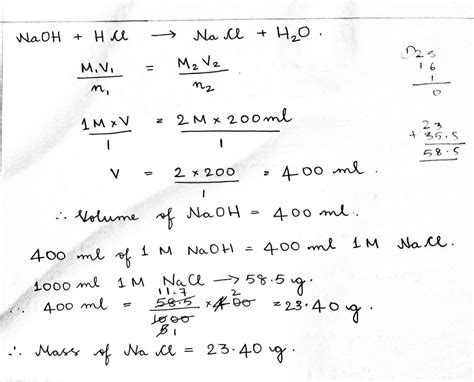 NaOH + HCl → NaCl + H2O.
M1V1 / n1 = M2V2 / n2
1M × V / 1 = 2M × 200ml / 1
V = 2 × 200 / 1 = 400 ml.
∴ Volume of NaOH = 400 ml.
400 ml of 1 M NaOH = 400 ml 1M NaCl.
1000 ml 1M NaCl → 58.5 g.
11.7 2
∴ 400 ml = 58.5 / 1000 × 400 = 23.40 g.
1
∴ Mass of NaCl = 23.40 g.
16
1
0
23
+ 35.5
58.5